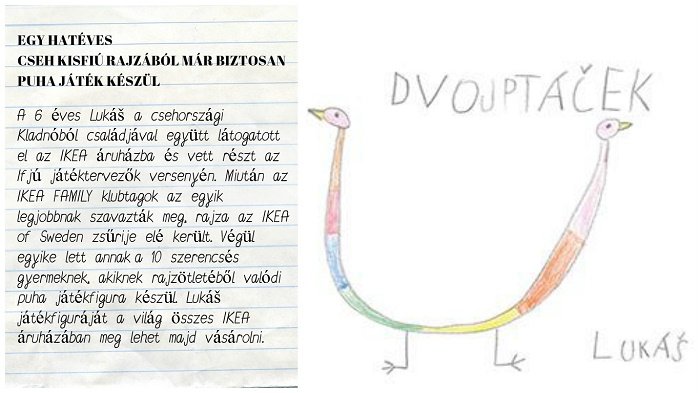 EGY HATÉVES
CSEH KISFIÚ RAJZÁBÓL MÁR BIZTOSAN
PUHA JÁTÉK KÉSZÜL
A 6 éves Lukáš a csehországi
Kladnóból családjával együtt látogatott
el az IKEA áruházba és vett részt az
Ifjú játéktervezők versenyén. Miután az
IKEA FAMILY klubtagok az egyik
legjobbnak szavazták meg, rajza az IKEA
of Sweden zsűrije elé került. Végül
egyike lett annak a 10 szerencsés
gyermeknek, akiknek rajzötletéből valódi
puha játékfigura készül. Lukáš
játékfiguráját a világ összes IKEA
áruházában meg lehet majd vásárolni.
DVOJPTÁČEK
LUKÁŠ